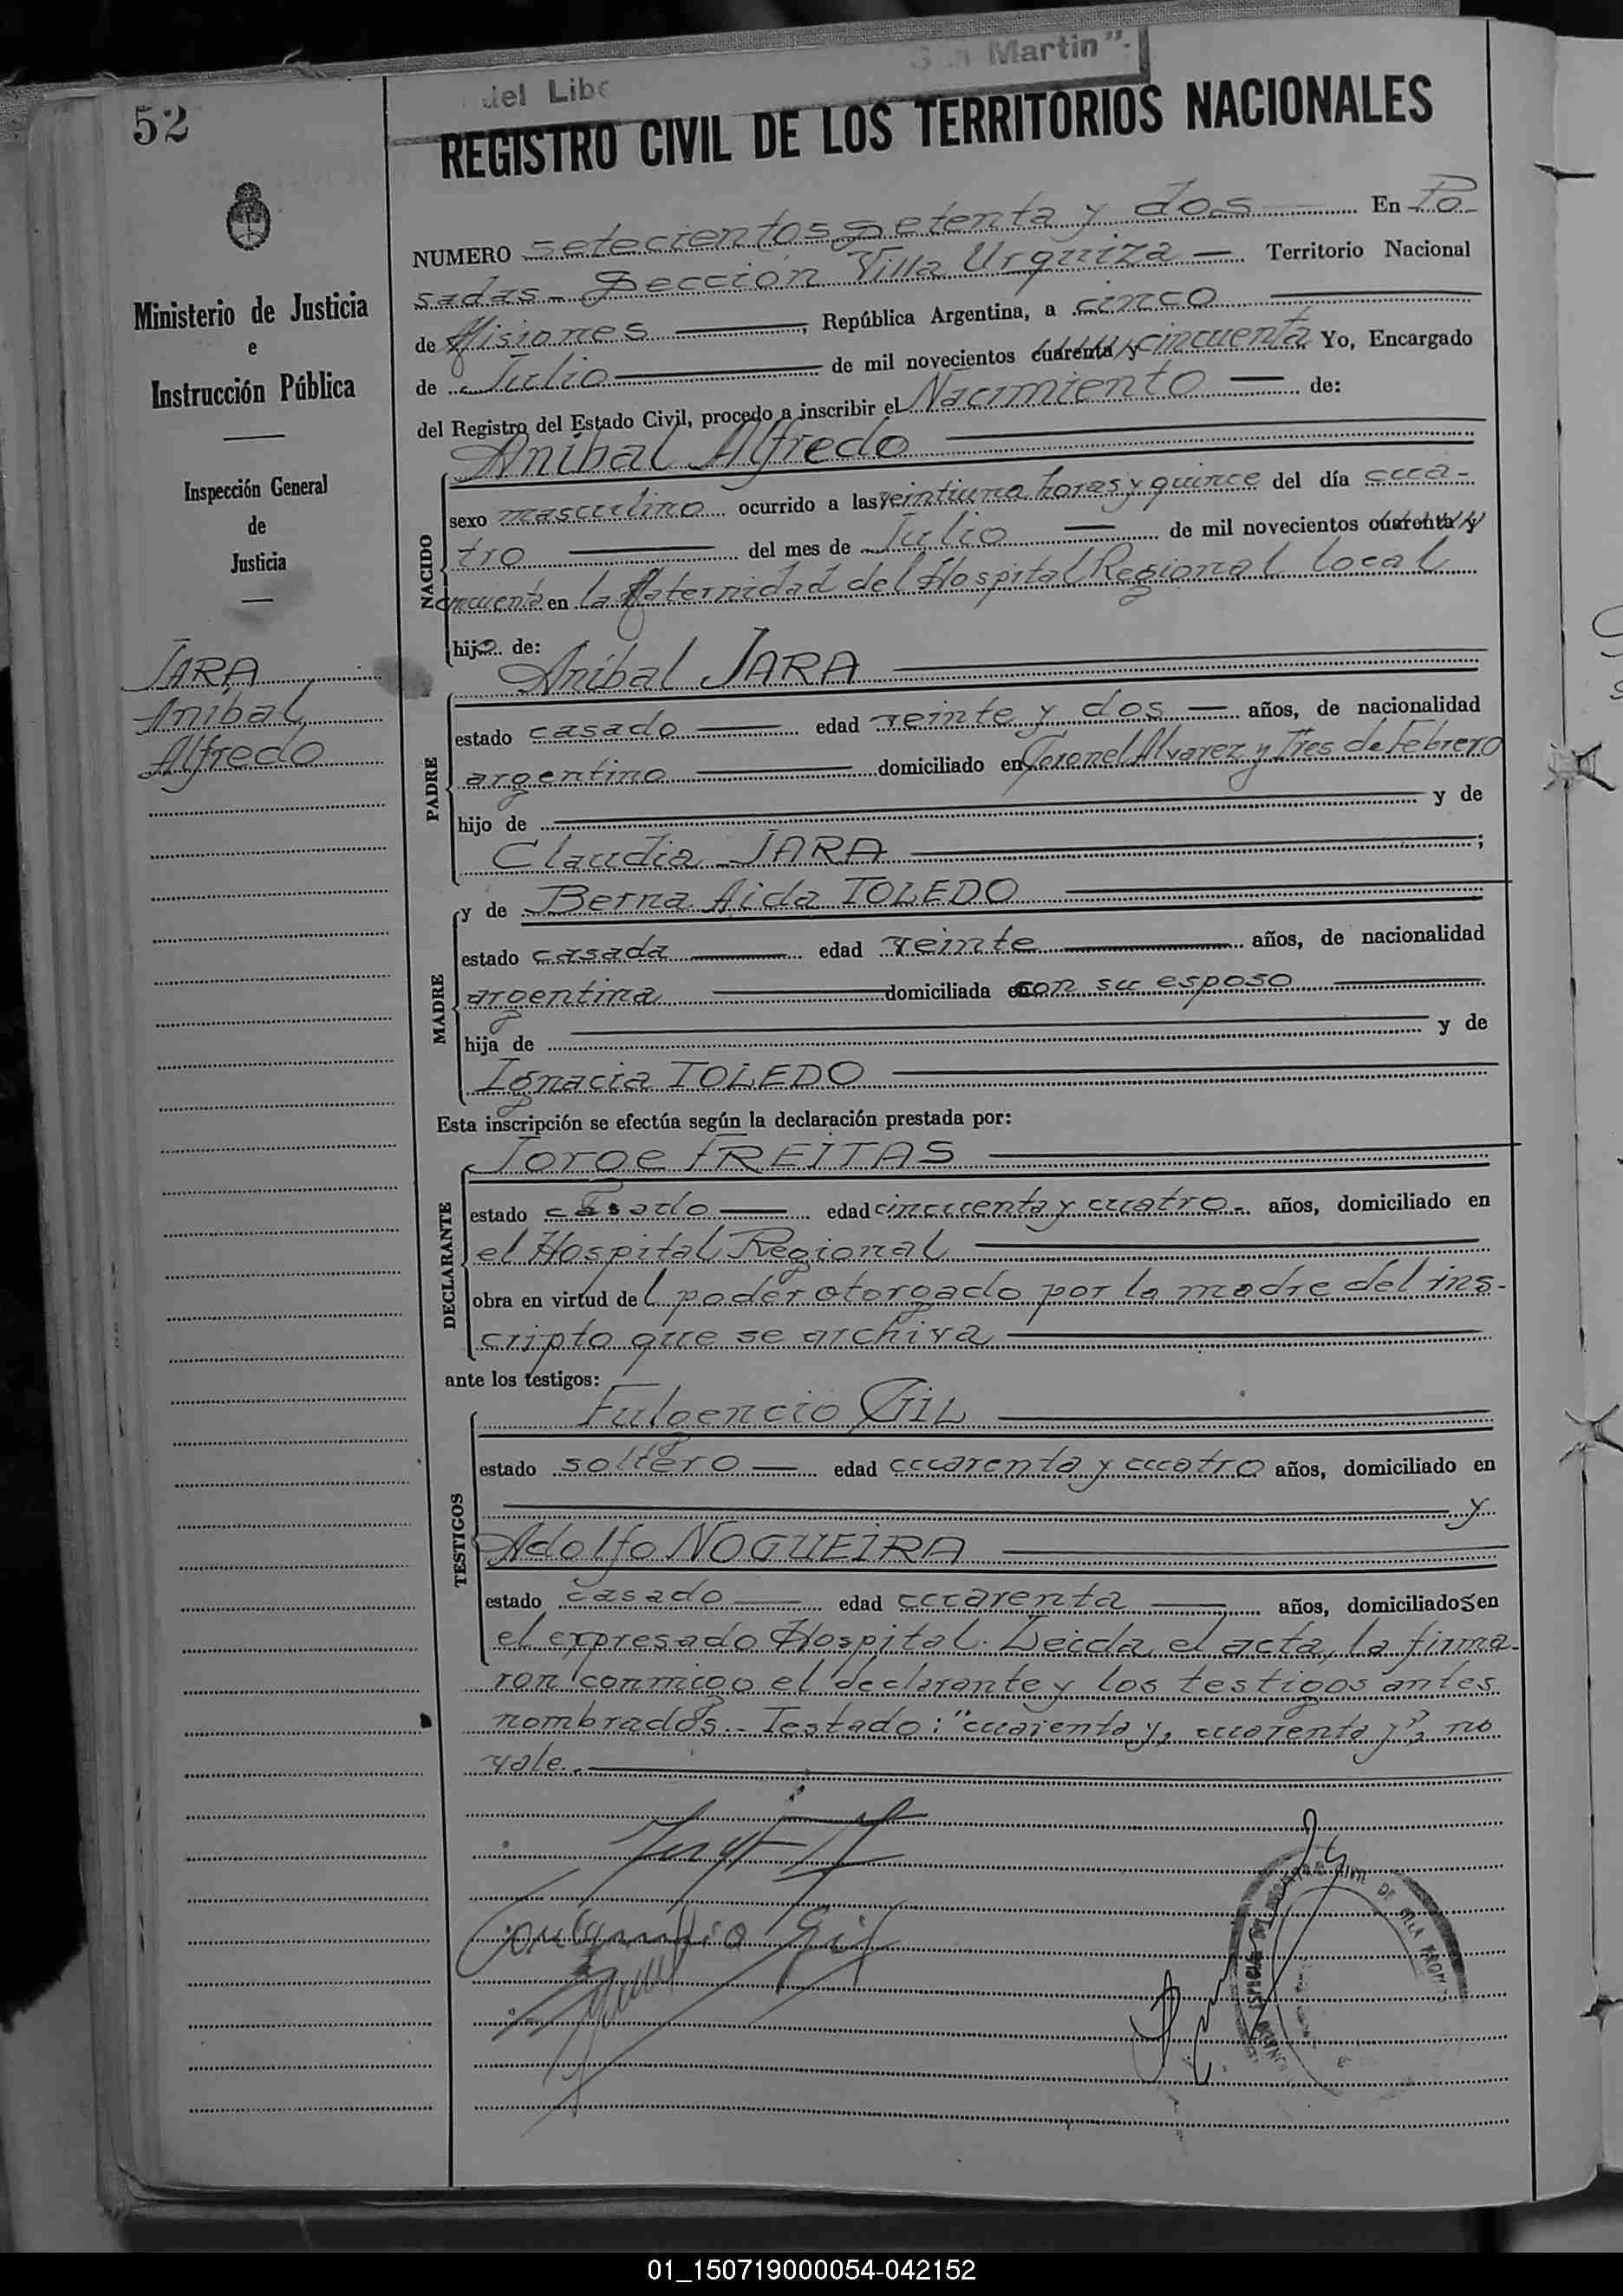 52
del Libe
San Martin".
REGISTRO CIVIL DE LOS TERRITORIOS NACIONALES
Ministerio de Justicia
e
Instrucción Pública
Inspección General
de
Justicia
JARA
Anibal
Alfredo
NUMERO setecientos setenta y dos En Po
sadas - Sección Villa Urquiza - Territorio Nacional
de Misiones, República Argentina, a cinco
de Julio de mil novecientos cuarenta y cincuenta Yo, Encargado
del Registro del Estado Civil, procedo a inscribir el Nacimiento de:
Anibal Alfredo
NACIDO
sexo masculino ocurrido a las veintiuna horas y quince del día cua-
tro del mes de Julio de mil novecientos cuarenta y
cincuenta en la Maternidad del Hospital Regional local
hijo de:
Anibal JARA
PADRE
estado casado edad veinte y dos años, de nacionalidad
argentino domiciliado en Coronel Alvarez y Tres de Febrero
hijo de y de
Claudia JARA ;
y de Berna Aida TOLEDO
MADRE
estado casada edad veinte años, de nacionalidad
argentina domiciliada con su esposo
hija de y de
Ignacia TOLEDO
Esta inscripción se efectúa según la declaración prestada por:
Jorge FREITAS
DECLARANTE
estado casado edad cincuenta y cuatro - años, domiciliado en
el Hospital Regional
obra en virtud del poder otorgado por la madre del ins-
cripto que se archiva
ante los testigos:
Fulgencio GIL
TESTIGOS
estado soltero edad cuarenta y cuatro años, domiciliado en
y
Adolfo NOGUEIRA
estado casado edad cuarenta años, domiciliados en
el expresado Hospital. Leida el acta, la firma-
ron conmigo el declarante y los testigos antes
nombrados.- Testado: "cuarenta y, cuarenta y", no
vale.-
Gil
CIVIL DE VILLA
01_150719000054-042152